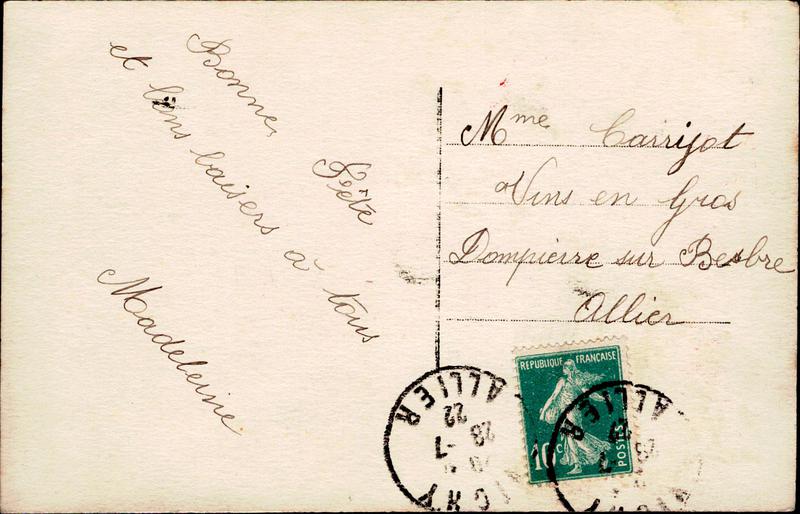 Bonne Fête
et bons baisers à tous
Madeleine
Mme Carrijot
Vins en Gros
Dompierre sur Besbre
Allier
REPUBLIQUE FRANÇAISE
10c
POSTES
ALLIER
28 -7
22
ALLIER